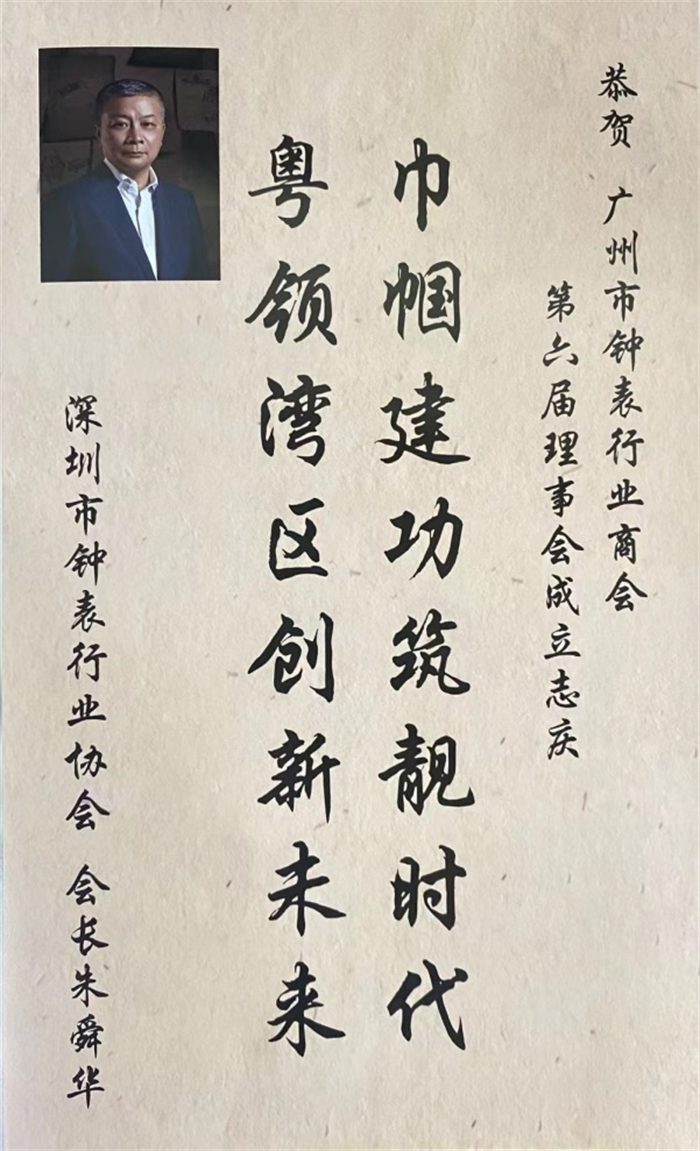 恭贺 广州市钟表行业商会
第六届理事会成立志庆
巾帼建功筑靓时代
粤领湾区创新未来
深圳市钟表行业协会 会长朱舜华